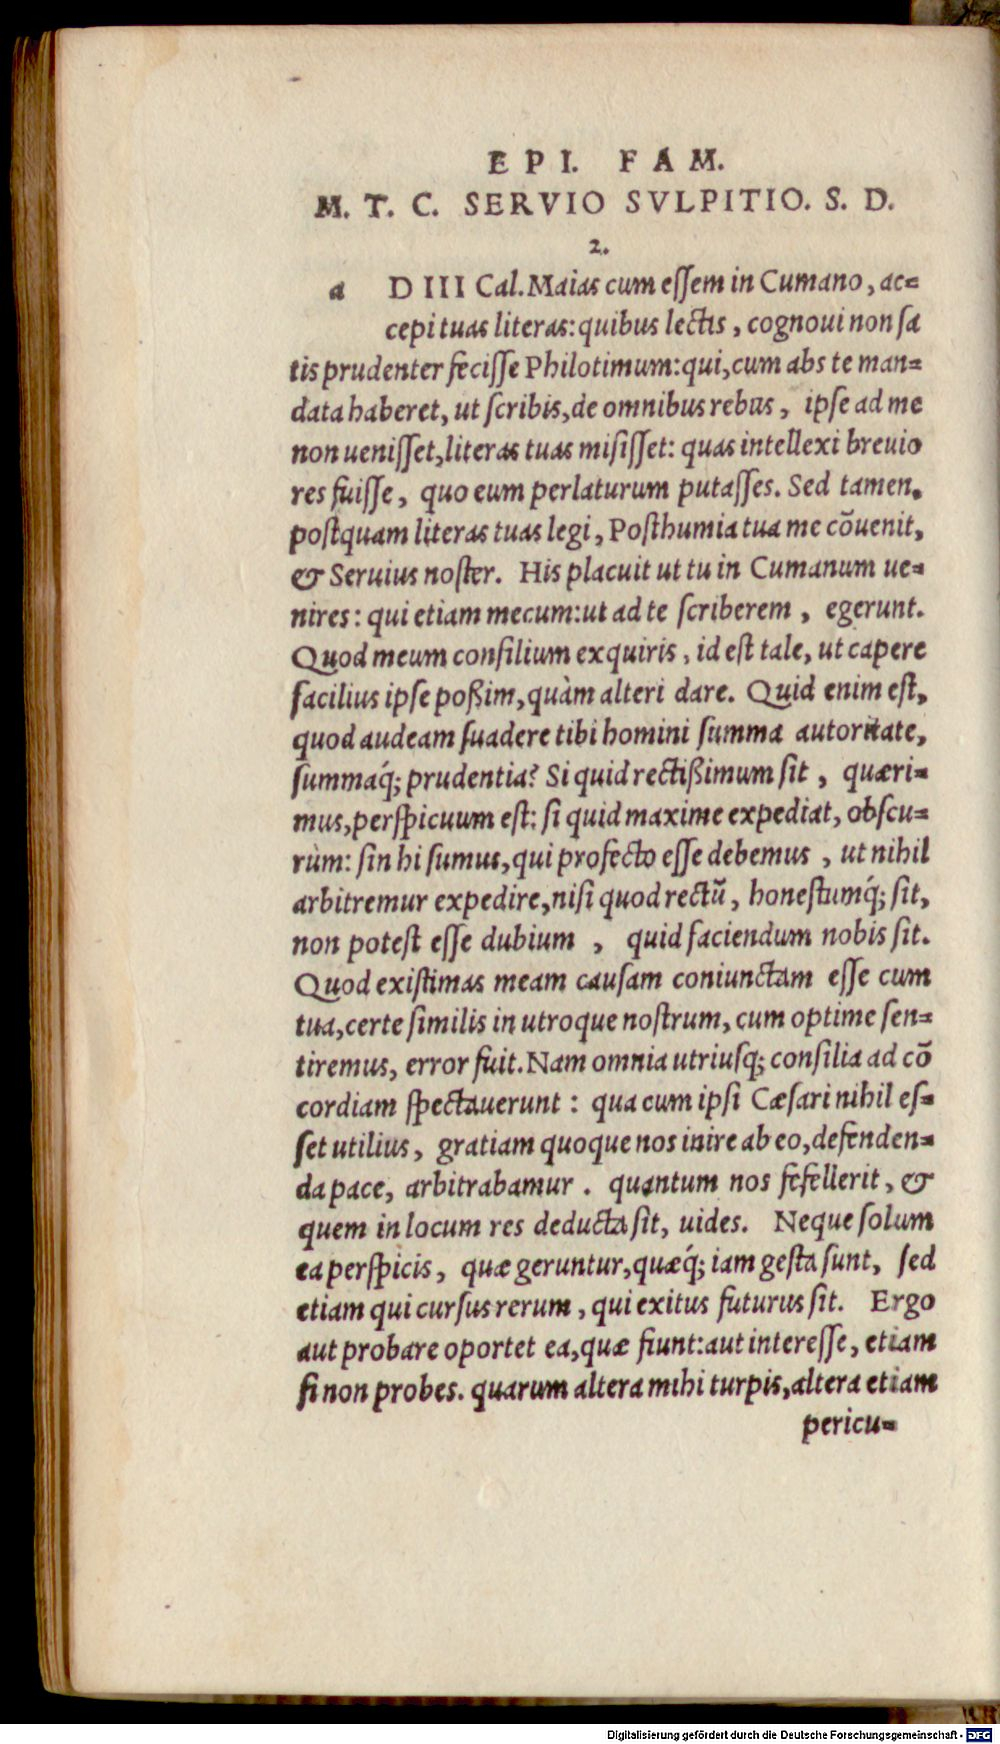 EPI. FAM.
M. T. C. SERVIO SVLPITIO. S. D.
2.
a D III Cal. Maias cum eſſem in Cumano, ac=
cepi tuas literas: quibus lectis, cognoui non ſa
tis prudenter feciſſe Philotimum: qui, cum abs te man=
data haberet, ut ſcribis, de omnibus rebus, ipſe ad me
non ueniſſet, literas tuas miſiſſet: quas intellexi breuio
res fuiſſe, quo eum perlaturum putaſſes. Sed tamen.
poſtquam literas tuas legi, Poſthumia tua me cõuenit,
& Seruius noſter. His placuit ut tu in Cumanum ue=
nires: qui etiam mecum: ut ad te ſcriberem, egerunt.
Quod meum conſilium exquiris, id eſt tale, ut capere
facilius ipſe poßim, quàm alteri dare. Quid enim eſt,
quod audeam ſuadere tibi homini ſumma autoritate,
ſummaq́; prudentia? Si quid rectißimum ſit, quæri=
mus, perſpicuum eſt: ſi quid maxime expediat, obſcu=
rùm: ſin hi ſumus, qui profecto eſſe debemus, ut nihil
arbitremur expedire, niſi quod rectũ, honeſtumq́; ſit,
non poteſt eſſe dubium, quid faciendum nobis ſit.
Quod exiſtimas meam cauſam coniunctam eſſe cum
tua, certe ſimilis in utroque noſtrum, cum optime ſen=
tiremus, error fuit. Nam omnia utriuſq; conſilia ad cõ
cordiam ſpectauerunt: qua cum ipſi Cæſari nihil eſ=
ſet utilius, gratiam quoque nos inire ab eo, defenden=
da pace, arbitrabamur. quantum nos fefellerit, &
quem in locum res deducta ſit, uides. Neque ſolum
ea perſpicis, quæ geruntur, quæq́; iam geſta ſunt, ſed
etiam qui curſus rerum, qui exitus futurus ſit. Ergo
aut probare oportet ea, quæ fiunt: aut intereſſe, etiam
ſi non probes. quarum altera mihi turpis, altera etiam
pericu=
Digitalisierung gefördert durch die Deutsche Forschungsgemeinschaft - DFG